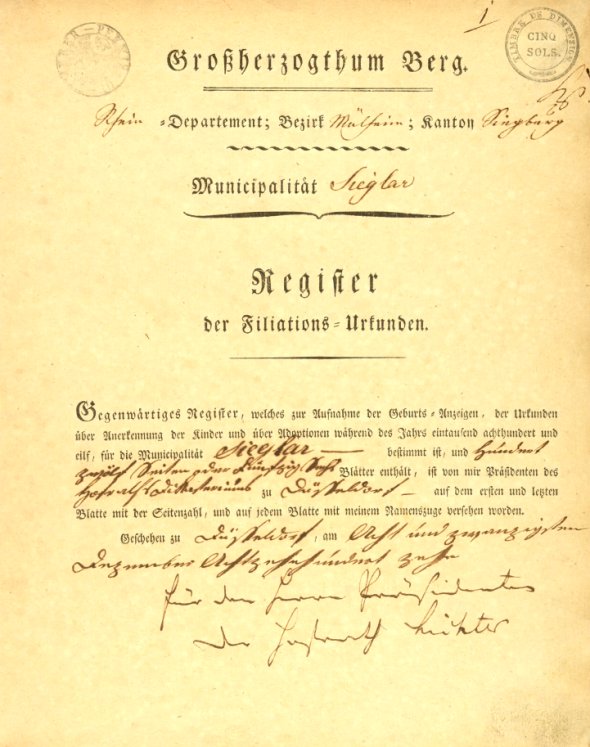 1
TIMBRE DE DIMENSION
CINQ
SOLS.
Großherzogthum Berg.
Rhein-Departement; Bezirk Mülheim; Kanton Siegburg
Municipalität Sieglar
Register
der Filiations-Urkunden.
Gegenwärtiges Register, welches zur Aufnahme der Geburts-Anzeigen, der Urkunden
über Anerkennung der Kinder und über Adoptionen während des Jahrs eintausend achthundert und
eilf, für die Municipalität Sieglar bestimmt ist, und Hundert
zwölf Seiten oder Fünfzig Sechs Blätter enthält, ist von mir Präsidenten des
Hofraths Dikasteriums zu Düsseldorf auf dem ersten und letzten
Blatte mit der Seitenzahl, und auf jedem Blatte mit meinem Namenszuge versehen worden.
Geschehen zu Düsseldorf, am Acht und zwanzigsten
Dezember Achtzehnhundert zehn
für den Herrn Präsidenten
Der Hofrath